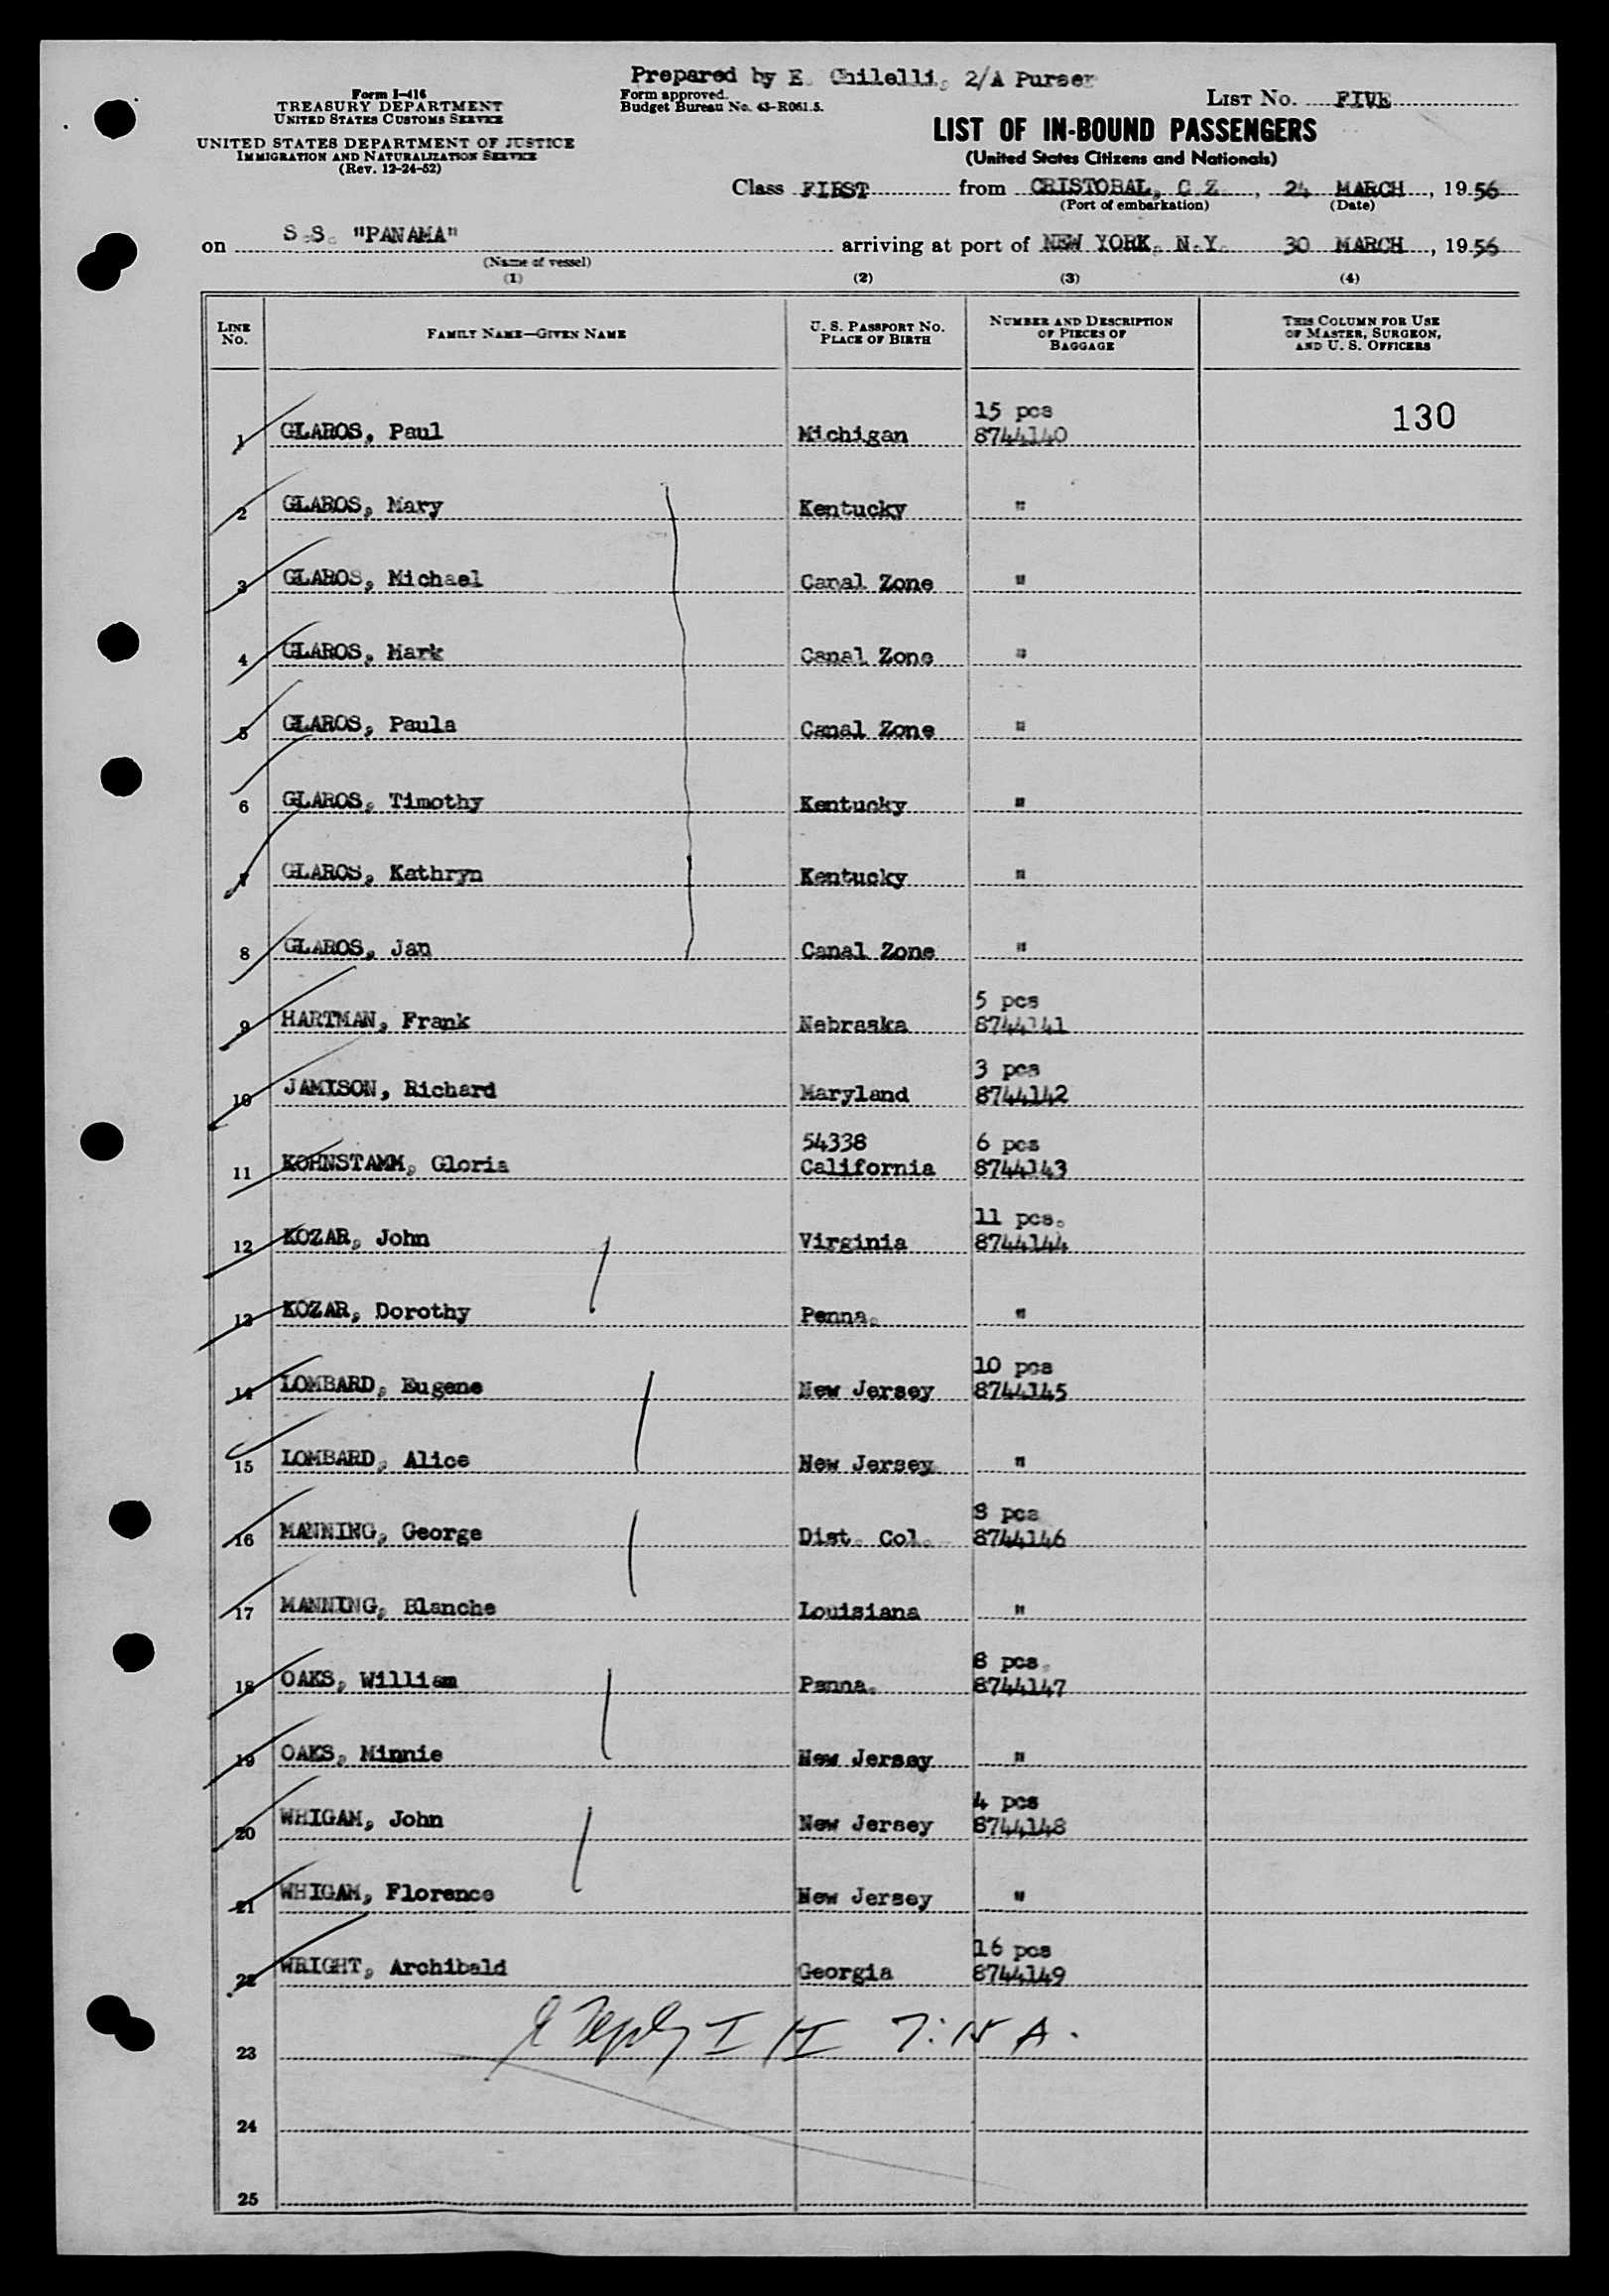 Prepared by E. Chilelli, 2/A Purser
Form I-416
TREASURY DEPARTMENT
UNITED STATES CUSTOMS SERVICE
UNITED STATES DEPARTMENT OF JUSTICE
IMMIGRATION AND NATURALIZATION SERVICE
(Rev. 12-24-52)
Form approved.
Budget Bureau No. 43-R061.5.
LIST No. FIVE
LIST OF IN-BOUND PASSENGERS
(United States Citizens and Nationals)
Class FIRST from CRISTOBAL, C.Z., 24 MARCH, 1956
(Port of embarkation) (Date)
on S.S. "PANAMA" arriving at port of NEW YORK, N.Y. 30 MARCH, 1956
(Name of vessel)
(1) (2) (3) (4)
LINE No. FAMILY NAME—GIVEN NAME U. S. PASSPORT NO. PLACE OF BIRTH NUMBER AND DESCRIPTION OF PIECES OF BAGGAGE THIS COLUMN FOR USE OF MASTER, SURGEON, AND U. S. OFFICERS
15 pcs 130
1 GLAROS, Paul Michigan 8744140
2 GLAROS, Mary Kentucky "
3 GLAROS, Michael Canal Zone "
4 GLAROS, Mark Canal Zone "
5 GLAROS, Paula Canal Zone "
6 GLAROS, Timothy Kentucky "
7 GLAROS, Kathryn Kentucky "
8 GLAROS, Jan Canal Zone "
5 pcs
9 HARTMAN, Frank Nebraska 8744141
3 pcs
10 JAMISON, Richard Maryland 8744142
54338 6 pcs
11 KOHNSTAMM, Gloria California 8744143
11 pcs.
12 KOZAR, John Virginia 8744144
13 KOZAR, Dorothy Penna. "
10 pcs
14 LOMBARD, Eugene New Jersey 8744145
15 LOMBARD, Alice New Jersey "
8 pcs
16 MANNING, George Dist. Col. 8744146
17 MANNING, Blanche Louisiana "
8 pcs.
18 OAKS, William Penna. 8744147
19 OAKS, Minnie New Jersey "
4 pcs
20 WHIGAM, John New Jersey 8744148
21 WHIGAM, Florence New Jersey "
16 pcs
22 WRIGHT, Archibald Georgia 8744149
23
24
25